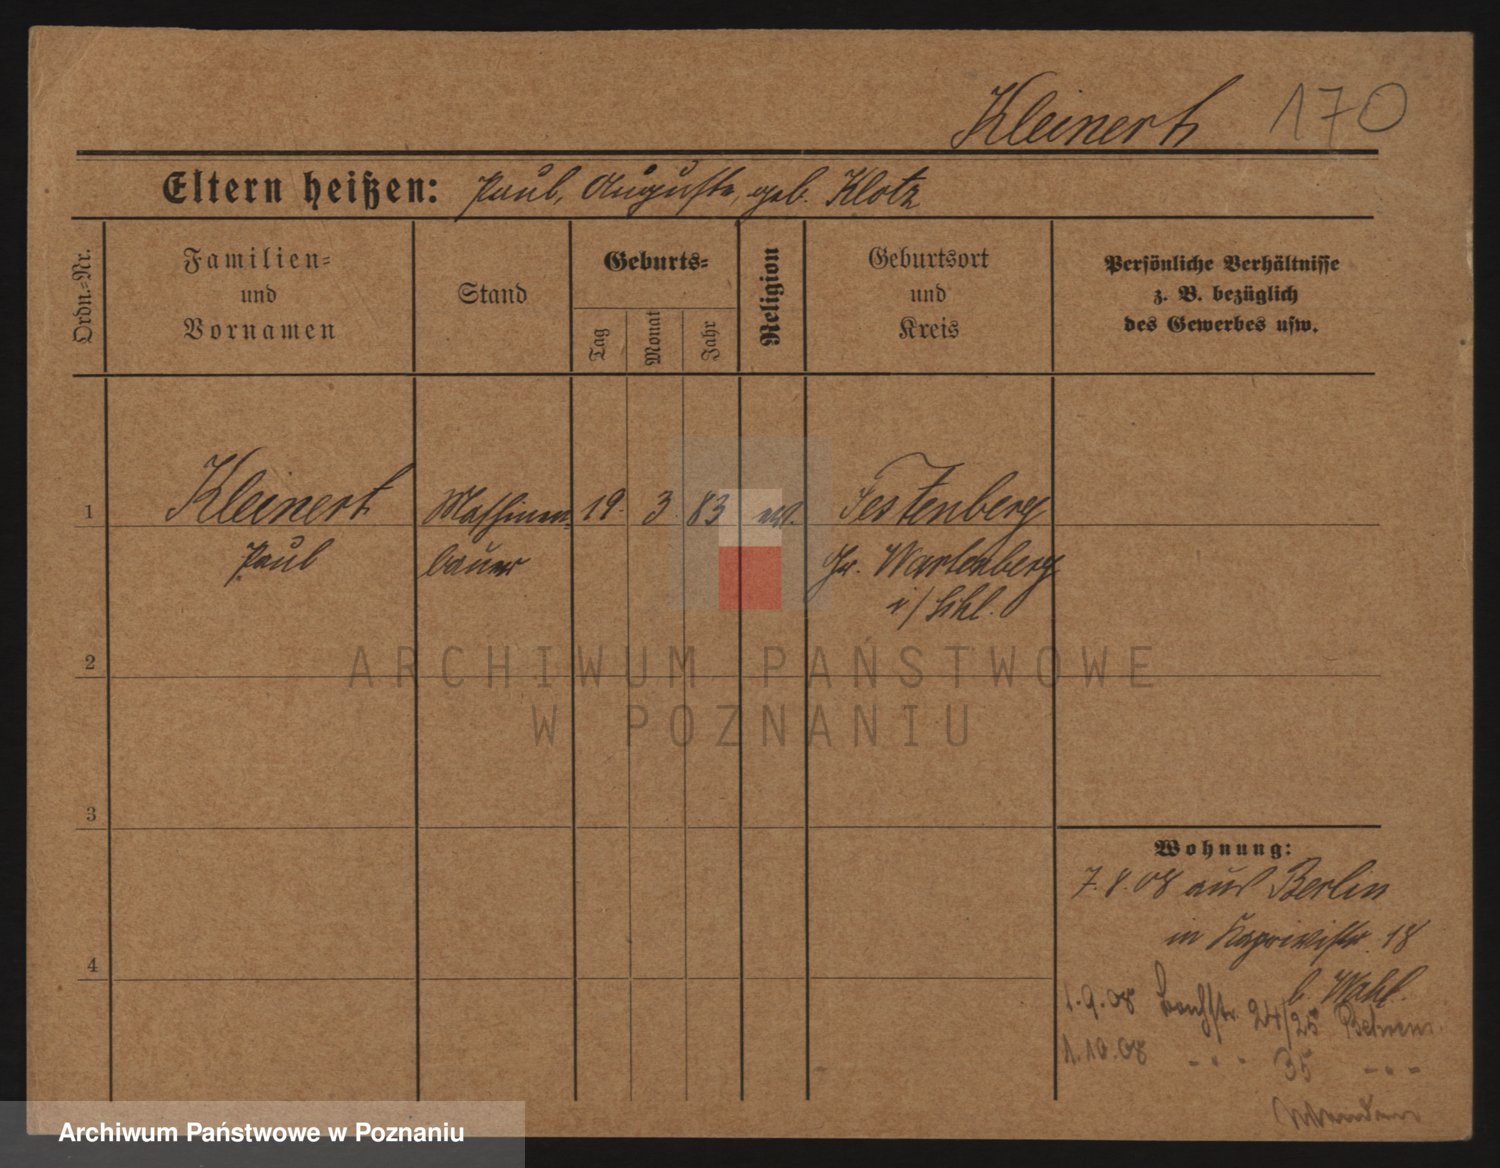 Kleinert 170
Eltern heißen: Paul, Auguste, geb. Klotz
Ordn.-Nr.
Familien-
und
Vornamen
Stand
Geburts-
Tag
Monat
Jahr
Religion
Geburtsort
und
Kreis
Persönliche Verhältnisse
z. B. bezüglich
des Gewerbes usw.
1
Kleinert Maschinen- 19. 3. 83 ev. Festenberg
Paul bauer Gr. Wartenberg
i/Schl.
2
ARCHIWUM PAŃSTWOWE
W POZNANIU
3
Wohnung:
7.8.08 aus Berlin
in Kaprivistr. 18
4
b. Wahl.
1.9.08 24/25
1.10.08 - " - 35 - " -
Archiwum Państwowe w Poznaniu